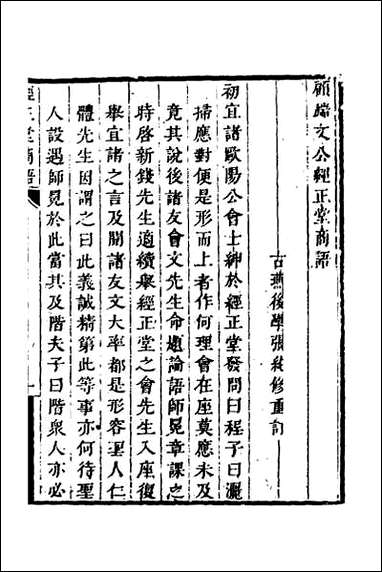 顧端文公經正堂商語
古燕後學張純修重訂
初宜諸歐陽公會士紳於經正堂發問曰程子曰灑
掃應對便是形而上者作何理會在座莫應未及
竟其說後諸友會文先生命題論語師冕章課之
時啓新錢先生適續舉經正堂之會先生入座復
舉宜諸之言及閱諸友文大率都是形容聖人仁
體先生因謂之曰此義誠精第此等事亦何待聖
人設遇師冕於此當其及階夫子曰階衆人亦必
經正堂商語
一